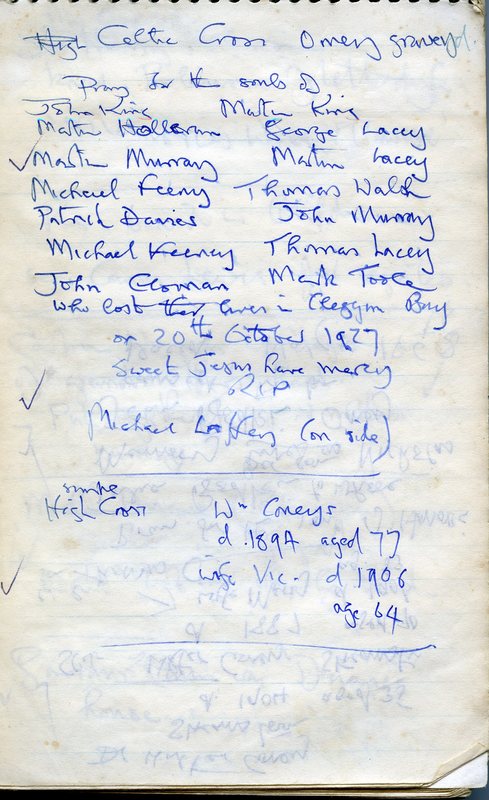 High Celtic Cross Omey graveyd.
Pray for the souls of,
John King Martin King
Martin Halloran George Lacey
Martin Murray Martin Lacey
Michael Feeny Thomas Walsh
Patrick Davies John Murray
Michael Keeney Thomas Lacey
John Cloman Mark Toole
who lost their lives in Cleggan Bay
on 20th October 1927
Sweet Jesus have mercy
RIP
Michael Laffey (on side)
simple
High Cross Wm Coneys
d. 1894 aged 77
wife Vic. d 1906
age 64